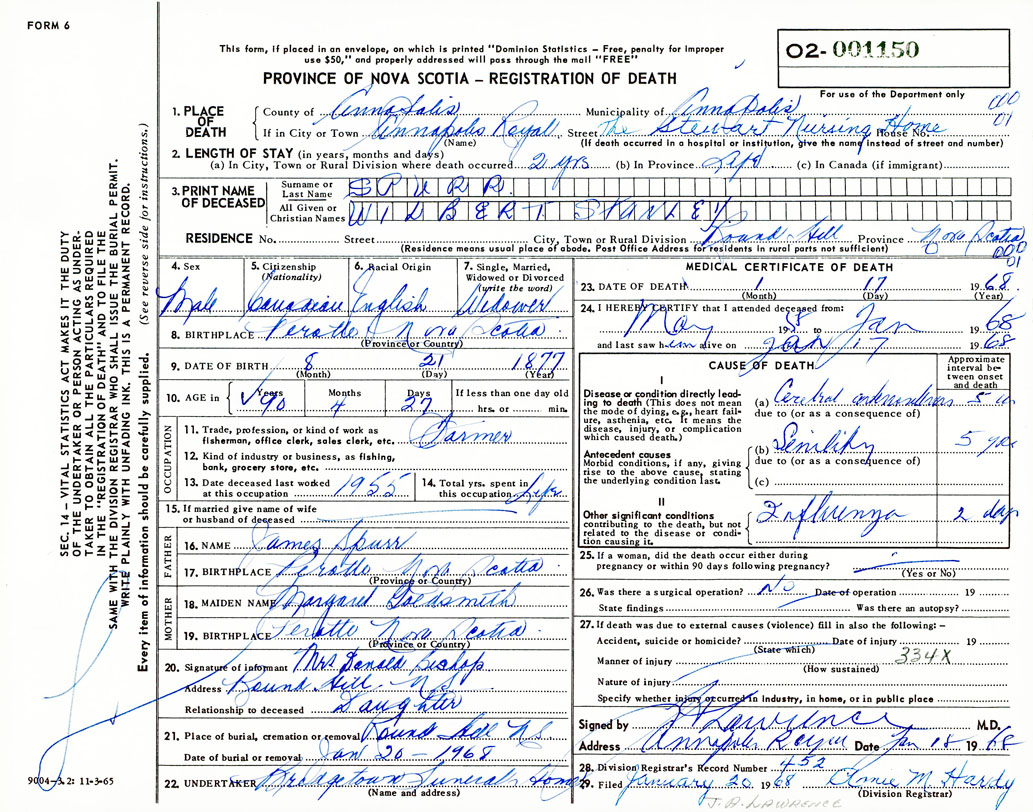 FORM 6
This form, if placed in an envelope, on which is printed "Dominion Statistics – Free, penalty for improper
use $50," and properly addressed will pass through the mail "FREE"
O2- 001150
PROVINCE OF NOVA SCOTIA – REGISTRATION OF DEATH
For use of the Department only
000
01
1. PLACE OF DEATH
County of Annapolis Municipality of Annapolis
If in City or Town Annapolis Royal Street The Stewart Nursing Home House No.
(Name) (If death occurred in a hospital or institution, give the name instead of street and number)
2. LENGTH OF STAY (in years, months and days)
(a) In City, Town or Rural Division where death occurred 2 yrs (b) In Province Life (c) In Canada (if immigrant)
3. PRINT NAME OF DECEASED
Surname or Last Name SPURR
All Given or Christian Names WILBERT STANLEY
RESIDENCE No. Street City, Town or Rural Division Round Hill Province Nova Scotia
(Residence means usual place of abode. Post Office Address for residents in rural parts not sufficient)
000
01
4. Sex Male
5. Citizenship (Nationality) Canadian
6. Racial Origin English
7. Single, Married, Widowed or Divorced (write the word) Widower
8. BIRTHPLACE Perotte Nova Scotia
(Province or Country)
9. DATE OF BIRTH 8 21 1877
(Month) (Day) (Year)
10. AGE in Years 90 Months 4 Days 27 If less than one day old hrs. or min.
OCCUPATION
11. Trade, profession, or kind of work as fisherman, office clerk, sales clerk, etc. Farmer
12. Kind of industry or business, as fishing, bank, grocery store, etc.
13. Date deceased last worked at this occupation 1955
14. Total yrs. spent in this occupation Life
15. If married give name of wife or husband of deceased
FATHER
16. NAME James Spurr
17. BIRTHPLACE Perotte Nova Scotia
(Province or Country)
MOTHER
18. MAIDEN NAME Margaret Goldsmith
19. BIRTHPLACE Perotte Nova Scotia
(Province or Country)
20. Signature of informant Mrs Donald Bishop
Address Round Hill N S
Relationship to deceased Daughter
21. Place of burial, cremation or removal Round Hill N S
Date of burial or removal Jan 20 – 1968
22. UNDERTAKER Bridgetown Funeral Home
(Name and address)
MEDICAL CERTIFICATE OF DEATH
23. DATE OF DEATH 1 17 1968
(Month) (Day) (Year)
24. I HEREBY CERTIFY that I attended deceased from:
May 1958 to Jan 1968
and last saw him alive on Jan 17 1968
CAUSE OF DEATH
Approximate interval between onset and death
I
Disease or condition directly leading to death (This does not mean the mode of dying, e.g., heart failure, asthenia, etc. It means the disease, injury, or complication which caused death.)
(a) Cerebral 5
due to (or as a consequence of)
Antecedent causes
Morbid conditions, if any, giving rise to the above cause, stating the underlying condition last.
(b) Senility 5 yrs
due to (or as a consequence of)
(c)
II
Other significant conditions contributing to the death, but not related to the disease or condition causing it.
Influenza 2 days
25. If a woman, did the death occur either during pregnancy or within 90 days following pregnancy?
(Yes or No)
26. Was there a surgical operation? No Date of operation 19
State findings Was there an autopsy?
27. If death was due to external causes (violence) fill in also the following: –
Accident, suicide or homicide? Date of injury 19
(State which)
334X
Manner of injury
(How sustained)
Nature of injury
Specify whether injury occurred in industry, in home, or in public place
Signed by Lawrence M.D.
Address Annapolis Royal Date Jan 18 1968
28. Division Registrar's Record Number 452
29. Filed January 20 1968 M. Hardy
(Division Registrar)
J. A. LAWRENCE
SEC. 14 – VITAL STATISTICS ACT MAKES IT THE DUTY
OF THE UNDERTAKER OR PERSON ACTING AS UNDER-
TAKER TO OBTAIN ALL THE PARTICULARS REQUIRED
IN THE "REGISTRATION OF DEATH" AND TO FILE THE
SAME WITH THE DIVISION REGISTRAR WHO SHALL ISSUE THE BURIAL PERMIT.
WRITE PLAINLY WITH UNFADING INK. THIS IS A PERMANENT RECORD.
Every item of information should be carefully supplied. (See reverse side for instructions.)
9004-3.2: 11-3-65